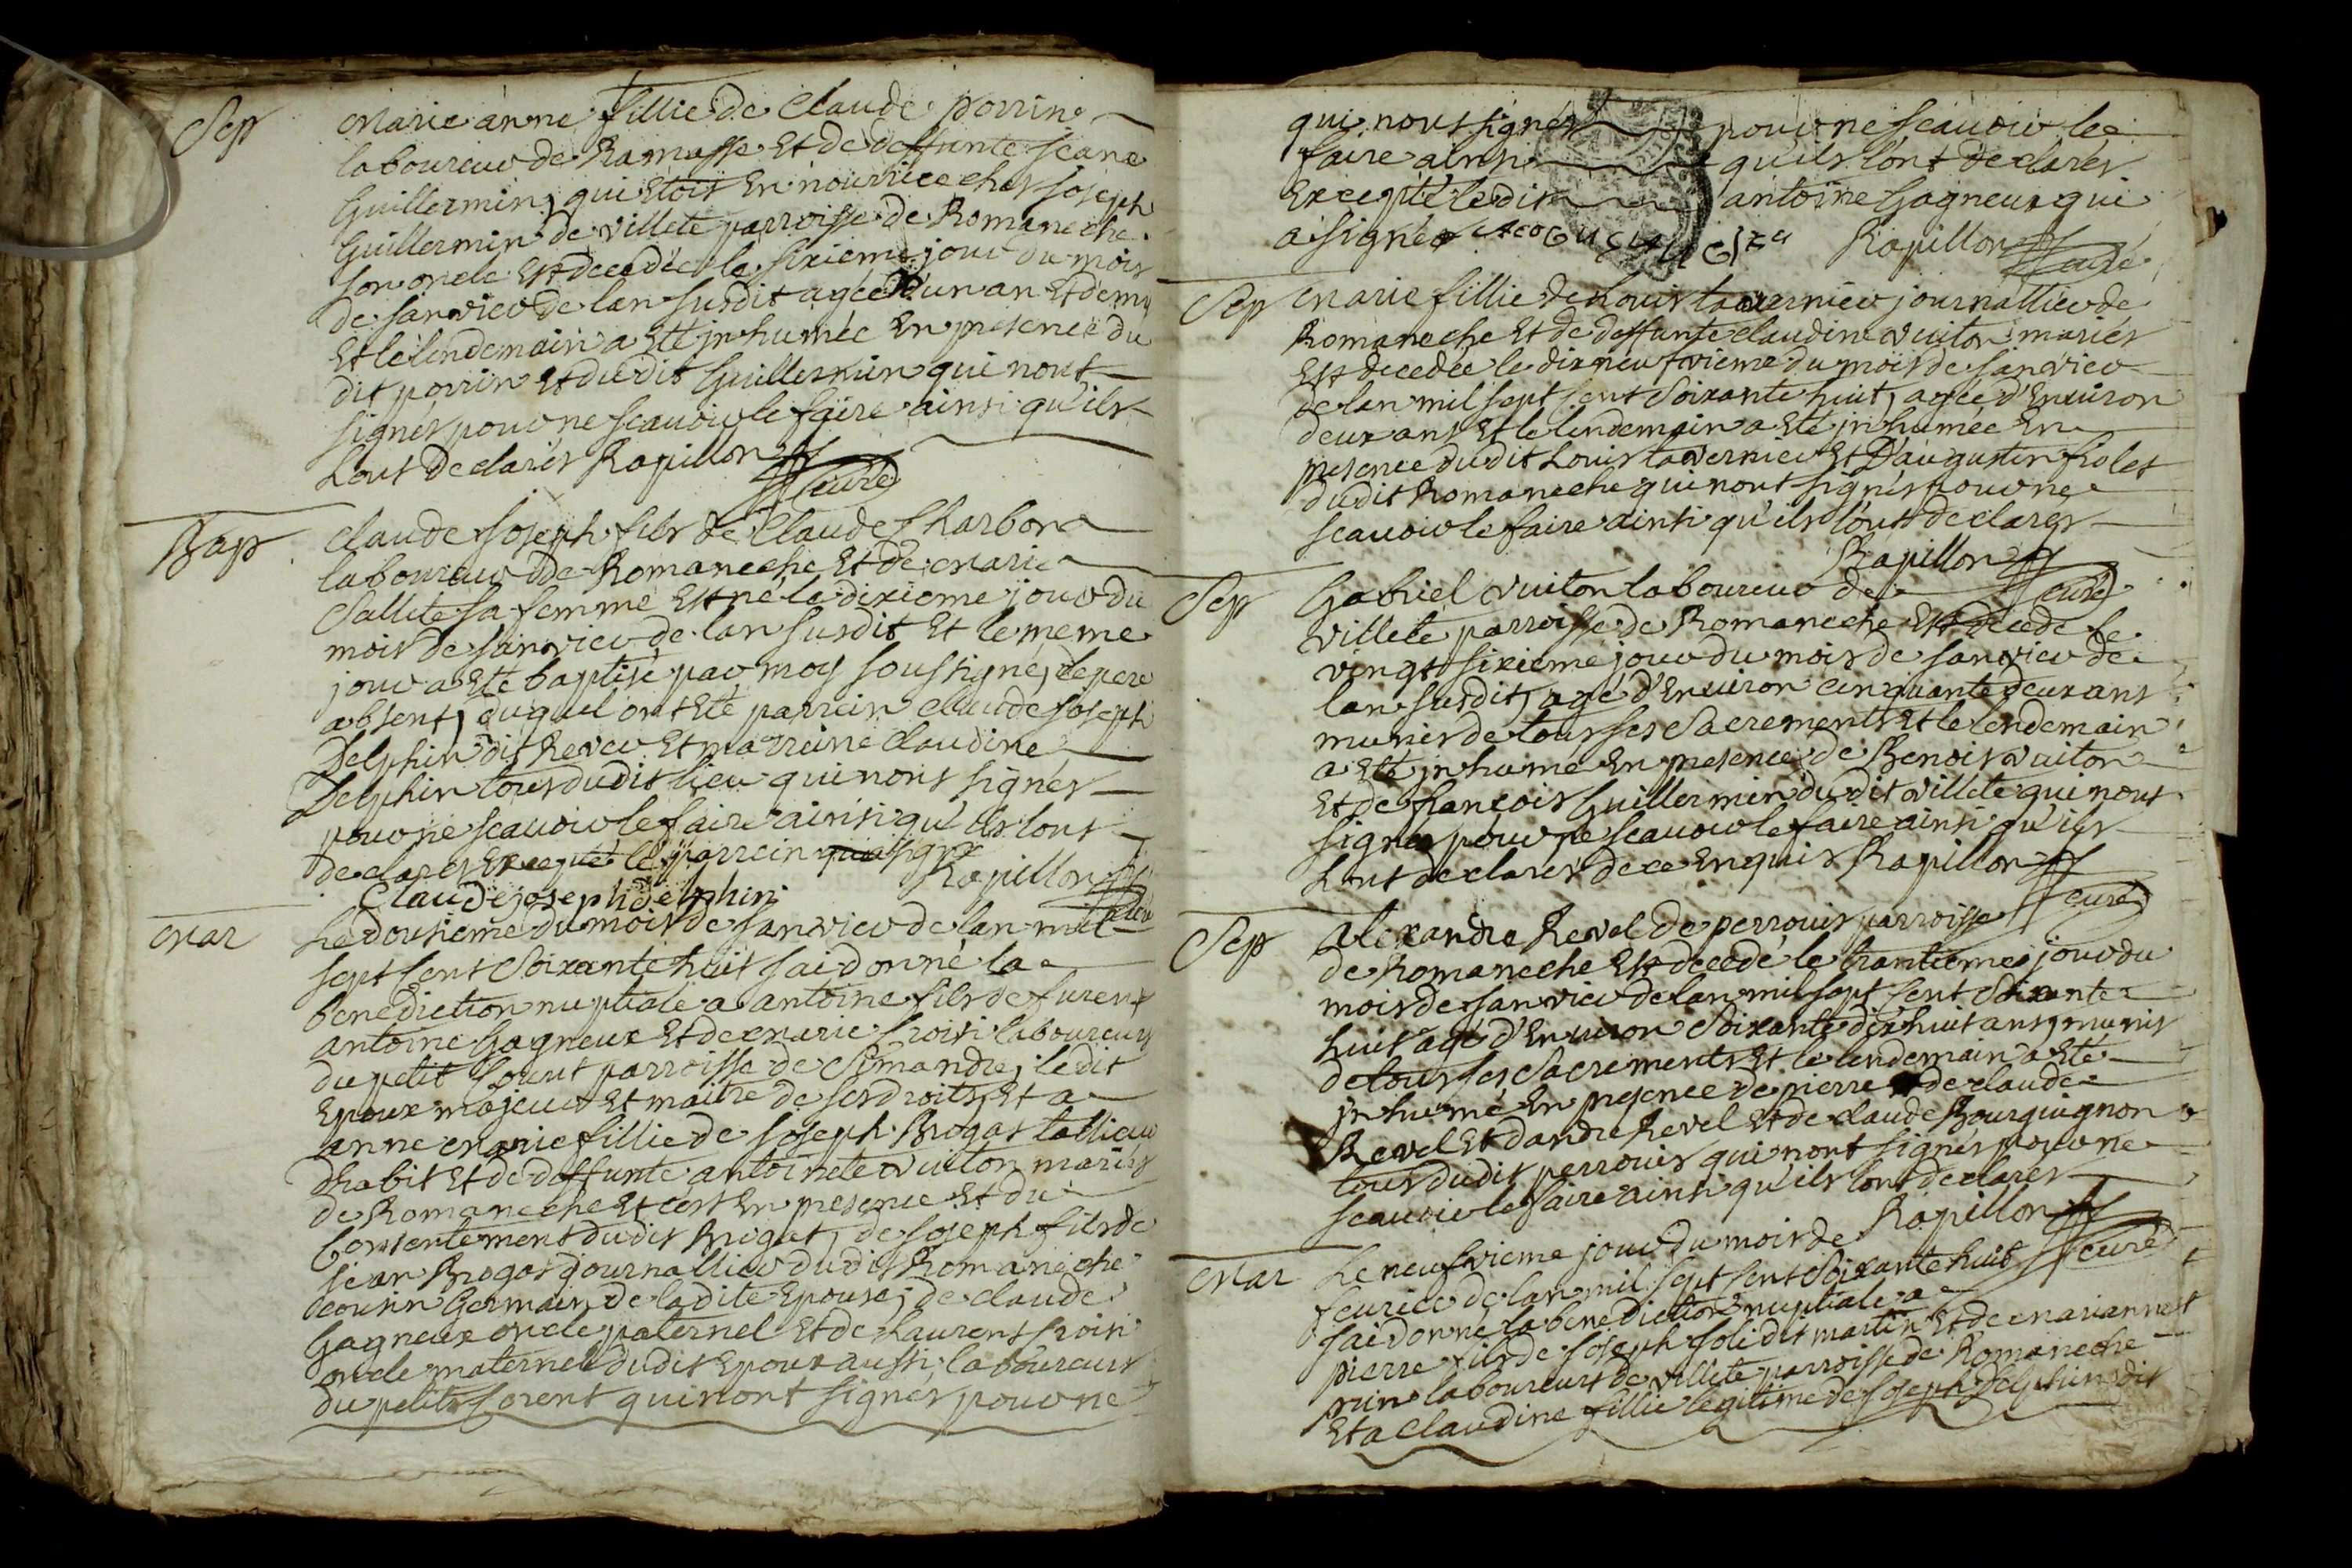 Sep Marie anne fillie de Claude perrin
laboureur de Ramasse Et de deffunte Jeane
Guillermin, qui Etoit En nourrice chés Joseph
Guillermin de villete parroisse de Romaneche
son oncle Est decedée le sixieme jour du mois
de janvier de lan susdit agée d'un an Et demy
Et le lendemain a Eté jnhumée En presence du
dit perrin Et du dit Guillermin qui nont
signés pour ne scauoir le faire ainsi qu'ils
Lont declarés Rapillon
curé
Bap Claude Joseph fils de Claude Charbon
laboureur de Romaneche Et de Marie
Sallite sa femme Est né le dixieme jour du
mois de janvier de lan susdit Et le meme
jour a Eté baptisé par moy soussigné, le pere
absent, duquel ont Eté parrein claude Joseph
Delphin dit Rever Et marreine claudine
Delphin tous dudit lieu qui nont signés
pour ne scauoir le faire ainsi qu'ils lont
declarés Excepté le parrein qui a signé
Claude joseph delphin Rapillon
curé
Mar Le dousieme du mois de janvier de lan mil
sept Cent Soixante huit jai donné la
benediction nuptiale a antoine fils de furent
antoine Gagneux Et de Marie froisi laboureurs
du petit Corent parroisse de Simandre, le dit
Epoux majeur Et maitre de ses droits, Et a
anne Marie fillie de Joseph Brogat tallieur
dhabit Et de deffunte antoinete vuiton mariés
de Romaneche Et cest En presence Et du
Consentement dudit Brogat, de Joseph fils de
jean Brogat journallier dudit Romaneche
cousin Germain de ladite Epouse, de claude
Gagneux oncle paternel Et de Laurent froisi
oncle maternel dudit Epoux aussi laboureurs
du petit Corent qui nont signés pour ne
qui nont signés pour ne scauoir le
faire ainsi qu'ils lont declarés
Excepté ledit antoine Gagneux qui
a signé Rapillon
curé
Sep Marie fillie de Louis tavernier journallier de
Romaneche Et de deffunte claudine vuiton mariés
Est decedée le dix neufvieme du mois de janvier
de lan mil sept cent Soixante huit, agée d'Environ
deux ans Et le lendemain a Eté jnhumée En
presence dudit Louis tavernier Et D'augustin folet
dudit Romaneche qui nont signés pour ne
scauoir le faire ainsi qu'ils lont declarés
Rapillon
curé
Sep Gabriel vuiton laboureur de
villete parroisse de Romaneche Est decedé le
vingt sixieme jour du mois de janvier de
lan susdit, agé d'Environ cinquante deux ans
munis de tous ses Sacrements Et le lendemain
a Eté jnhumé En presence de Benois vuiton
Et de francois Guillermin du dit villete qui nont
signés pour ne scauoir le faire ainsi qu'ils
Lont declarés de ce Enquis Rapillon
curé
Sep Alexandre Revel de perrouis parroisse
de Romaneche Est decedé le trantieme jour du
mois de janvier de lan mil sept Cent Soixante
huit agé d'Environ Soixante dixhuit ans, munis
de tous ses Sacrements Et le lendemain a Eté
jnhumé En presence de pierre de claude
Revel Et dandre Revel Et de claude Bourguignon
tous dudit perrouis qui nont signés pour ne
scauoir le faire ainsi qu'ils lont declarés
Rapillon
curé
Mar Le neufvieme jour du mois de
feurier de lan mil sept cent Soixante huit
jai donné la benediction nuptiale a
pierre fils de Joseph Joli dit martin Et de marianne
prin laboureurs de villete parroisse de Romaneche
Et a Claudine fillie legitime de Joseph Delphin dit